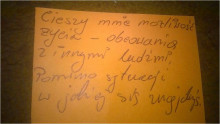 Cieszy mnie możliwość
życia – obcowania
z innymi ludźmi.
Pomimo sytuacji
w jakiej się znajduję.